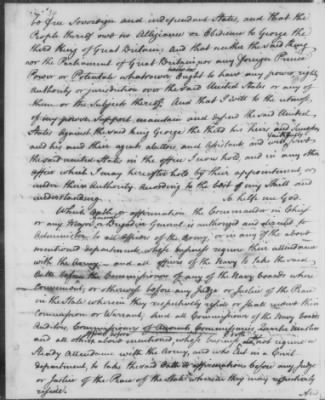 to free Sovereign and independent States, and that the
People thereof owe no Allegiance or Obedience to George the
third King of Great Britain; And that neither the said King
nor the Parliament of Great Britain, nor any foreign Prince
Power or Potentate whatsoever Ought to have any power, right
Authority or jurisdiction over the said United States or any of
them or the Subjects thereof. And that I will to the utmost
of my power, Support, maintain and defend the said United
States against the said King George the third his heirs and Successors
and his and their agents abettors, and Assistants and will
faithfully
the said United States in the office I now hold, and in any other
office which I may hereafter hold by their appointment, or
under their Authority According to the best of my Skill and
understanding. So help me God.
Which Oath or affirmation the Commander in Chief
or any Major or Brigadier General is authorized and
Administer to all Officers of the Army, or in any of the above
mentioned departments whose business require their attendance
with the Army — and all officers of the Navy to take the said
Oath before the Commissioners of any of the Navy boards where
convenient, or otherwise before any Judge or Justice of the Peace
in the State wherein they respectively reside or shall receive their
Commission or Warrant; And all Commissioners of the Navy boards
Auditors, Commissioners of Accounts
and all others above mentioned, whose business not require a
Steady Attendance with the Army, and who Act in a Civil
department, to take the said Oath or affirmations before any Judge
or Justice of the Peace of the State wherein they may respectively
reside.
And